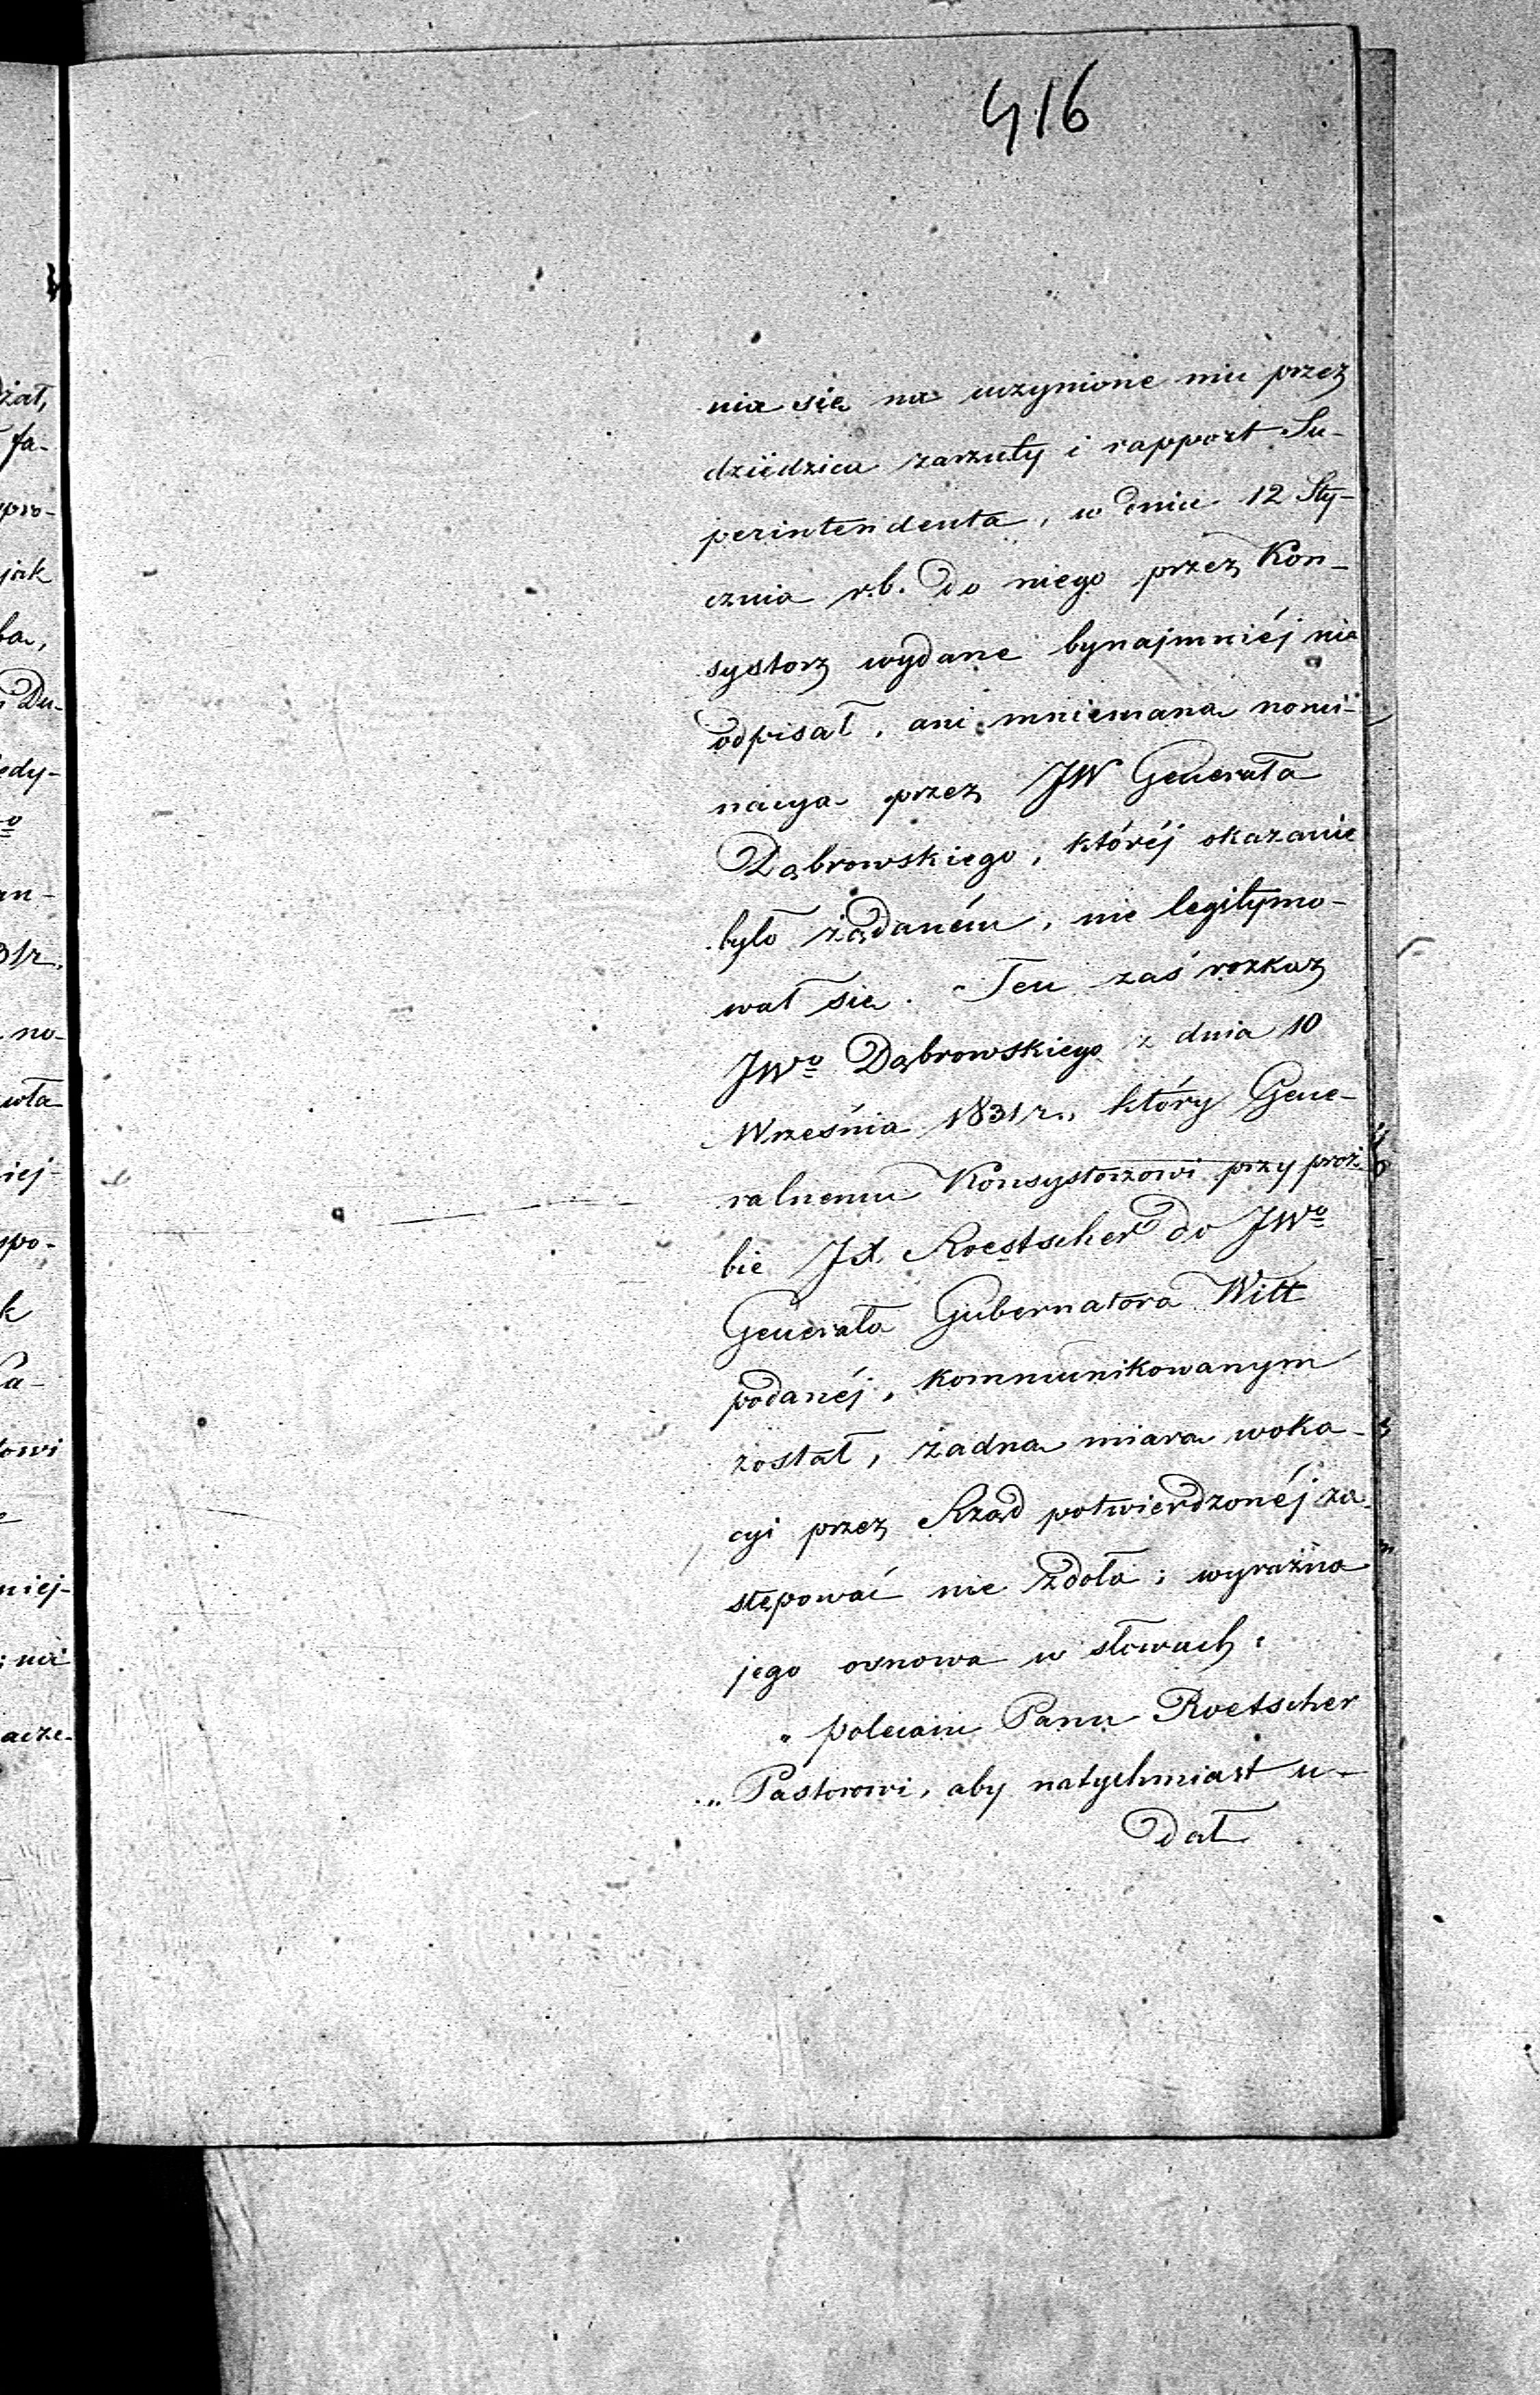 416
nia się na uczynione mu przez
dziedzica zarzuty i rapport Su-
perintendenta, w dniu 12 Sty-
cznia r.b. do niego przez Kon-
systorz wydane bynajmniéj nie
odpisał, ani mniemaną nomi-
nacyą przez JW Generała
Dąbrowskiego, któréj okazanie
było żądaném, nie legitymo-
wał się. Ten zaś rozkaz
JWº Dąbrowskiego z dnia 10
Września 1831 r., który Gene-
ralnemu Konsystorzowi przy proź-
bie JX. Roestscher do JWº
Generała Gubernatora Witt
podanéj, kommunikowanym
został, żadną miarą woka-
cyi przez Rząd potwierdzonéj za-
stępować nie zdoła; wyraźna
jego osnowa w słowach:
„polecam Panu Roetscher
„Pastorowi, aby natychmiast u-
dał
dział,
fa-
pro-
jak
ba,
Du-
edy-
an-
31 r.
no-
iej-
po-
k
owi
niej-
na
acze-